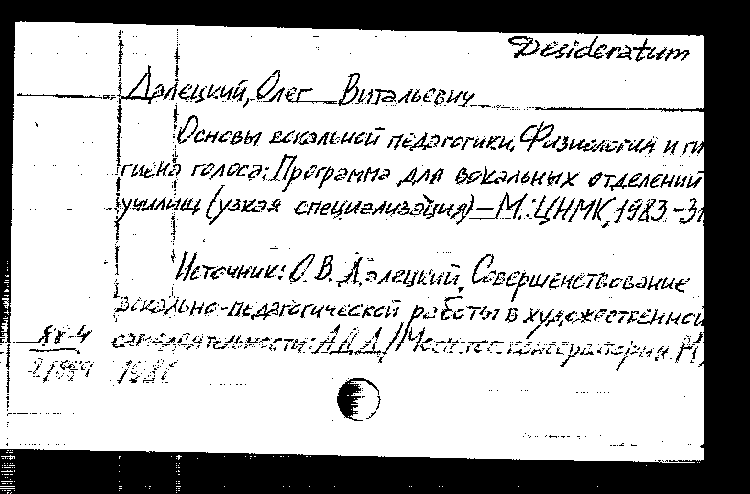 Desideratum
Далецкий, Олег Витальевич
Основы вокальной педагогики. Физиология и ги
гиена голоса: Программа для вокальных отделений
училищ (узкая специализация) – М.: ЦНМК, 1983.-31
Источник: О.В. Далецкий. Совершенствование
вокально-педагогической работы в художественной
самодеятельности: АДД / Моск. гос. консерватория. М.,